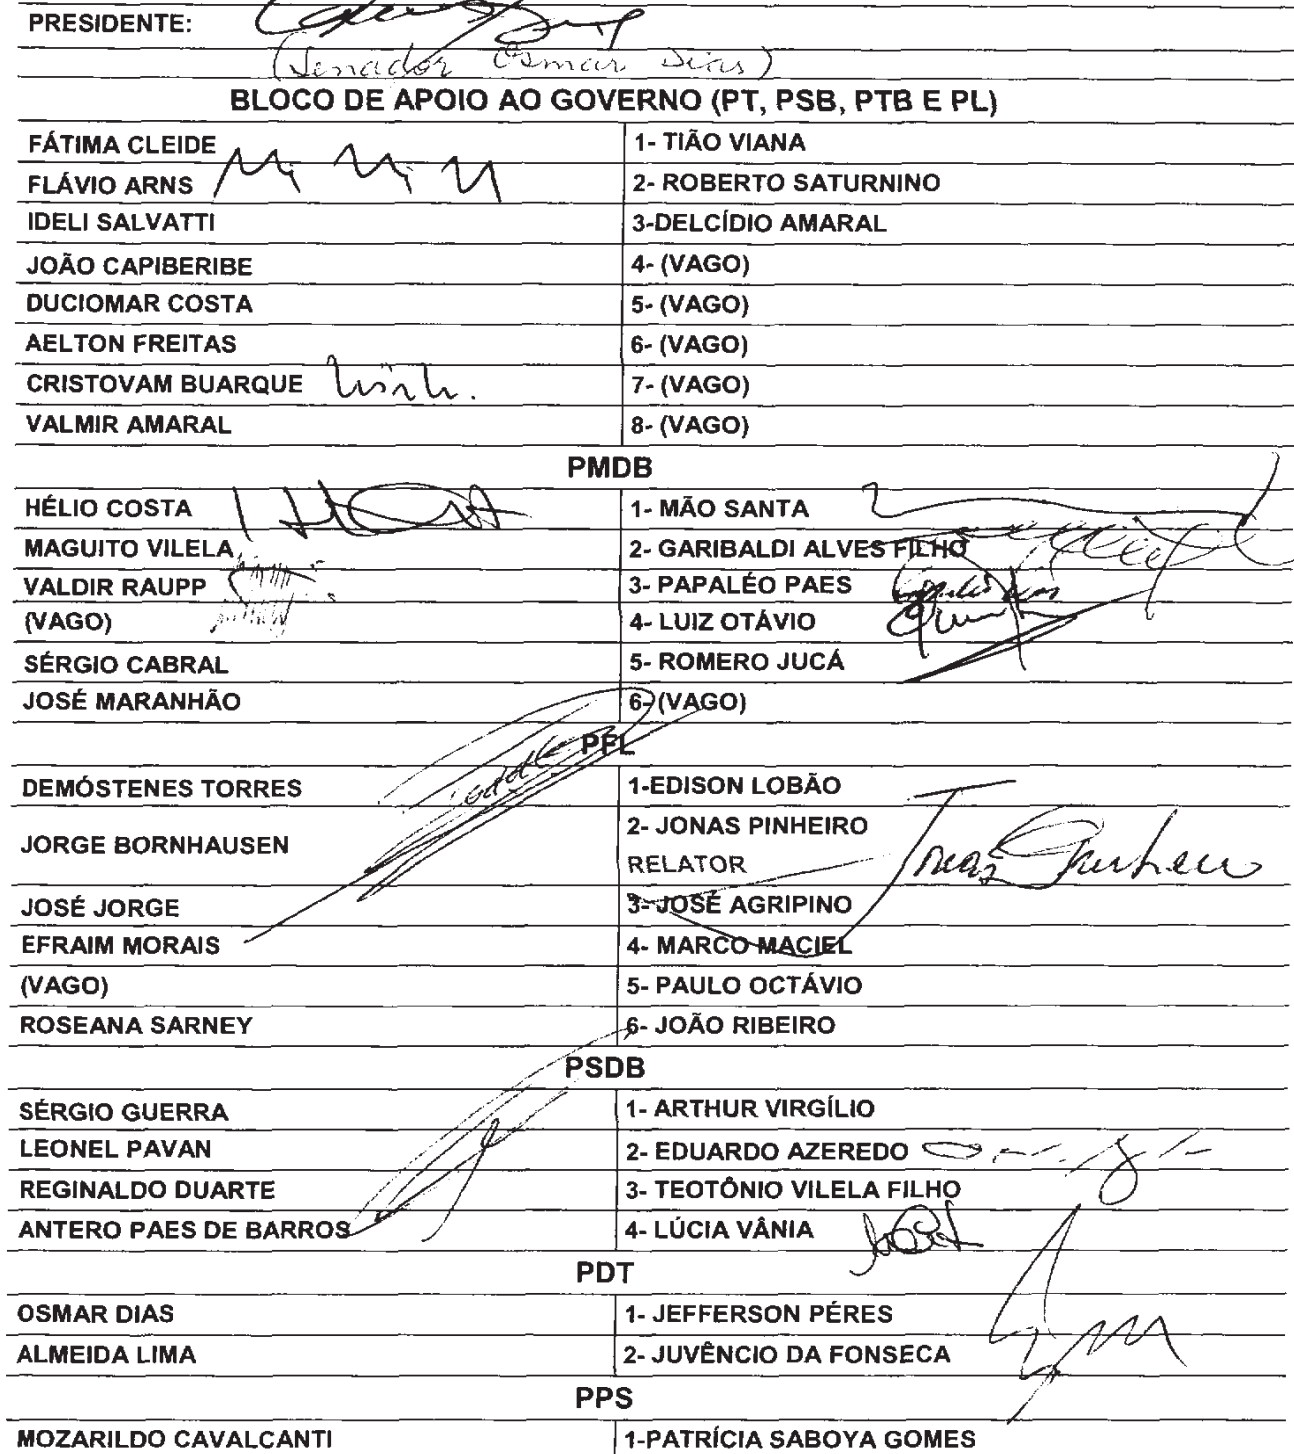 PRESIDENTE:
(Senador Osmar Dias)
BLOCO DE APOIO AO GOVERNO (PT, PSB, PTB E PL)
FÁTIMA CLEIDE 1- TIÃO VIANA
FLÁVIO ARNS 2- ROBERTO SATURNINO
IDELI SALVATTI 3-DELCÍDIO AMARAL
JOÃO CAPIBERIBE 4- (VAGO)
DUCIOMAR COSTA 5- (VAGO)
AELTON FREITAS 6- (VAGO)
CRISTOVAM BUARQUE 7- (VAGO)
VALMIR AMARAL 8- (VAGO)
PMDB
HÉLIO COSTA 1- MÃO SANTA
MAGUITO VILELA 2- GARIBALDI ALVES FILHO
VALDIR RAUPP 3- PAPALÉO PAES
(VAGO) 4- LUIZ OTÁVIO
SÉRGIO CABRAL 5- ROMERO JUCÁ
JOSÉ MARANHÃO 6- (VAGO)
PFL
DEMÓSTENES TORRES 1-EDISON LOBÃO
JORGE BORNHAUSEN 2- JONAS PINHEIRO
RELATOR Jonas Pinheiro
JOSÉ JORGE 3- JOSÉ AGRIPINO
EFRAIM MORAIS 4- MARCO MACIEL
(VAGO) 5- PAULO OCTÁVIO
ROSEANA SARNEY 6- JOÃO RIBEIRO
PSDB
SÉRGIO GUERRA 1- ARTHUR VIRGÍLIO
LEONEL PAVAN 2- EDUARDO AZEREDO
REGINALDO DUARTE 3- TEOTÔNIO VILELA FILHO
ANTERO PAES DE BARROS 4- LÚCIA VÂNIA
PDT
OSMAR DIAS 1- JEFFERSON PÉRES
ALMEIDA LIMA 2- JUVÊNCIO DA FONSECA
PPS
MOZARILDO CAVALCANTI 1-PATRÍCIA SABOYA GOMES